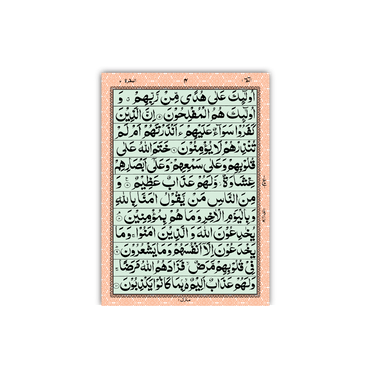 البقرة ٢
اُولٰٓئِكَ عَلٰى هُدًى مِّنْ رَّبِّهِمْ ۙ وَ
اُولٰٓئِكَ هُمُ الْمُفْلِحُوْنَ ۝ اِنَّ الَّذِيْنَ
كَفَرُوْا سَوَآءٌ عَلَيْهِمْ ءَاَنْذَرْتَهُمْ اَمْ لَمْ
تُنْذِرْهُمْ لَا يُؤْمِنُوْنَ ۝ خَتَمَ اللّٰهُ عَلٰى
قُلُوْبِهِمْ وَعَلٰى سَمْعِهِمْ ؕ وَعَلٰٓى اَبْصَارِهِمْ
غِشَاوَةٌ ؗ وَّلَهُمْ عَذَابٌ عَظِيْمٌ ۝ وَ
مِنَ النَّاسِ مَنْ يَّقُوْلُ اٰمَنَّا بِاللّٰهِ
وَبِالْيَوْمِ الْاٰخِرِ وَمَا هُمْ بِمُؤْمِنِيْنَ ۝
يُخٰدِعُوْنَ اللّٰهَ وَالَّذِيْنَ اٰمَنُوْا ۚ وَمَا
يَخْدَعُوْنَ اِلَّآ اَنْفُسَهُمْ وَمَا يَشْعُرُوْنَ ۝
فِيْ قُلُوْبِهِمْ مَّرَضٌ ۙ فَزَادَهُمُ اللّٰهُ مَرَضًا ۚ
وَلَهُمْ عَذَابٌ اَلِيْمٌ ۢ بِمَا كَانُوْا يَكْذِبُوْنَ ۝